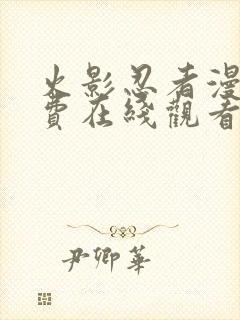 火影忍者漫
費在綫觀看
尹卿華